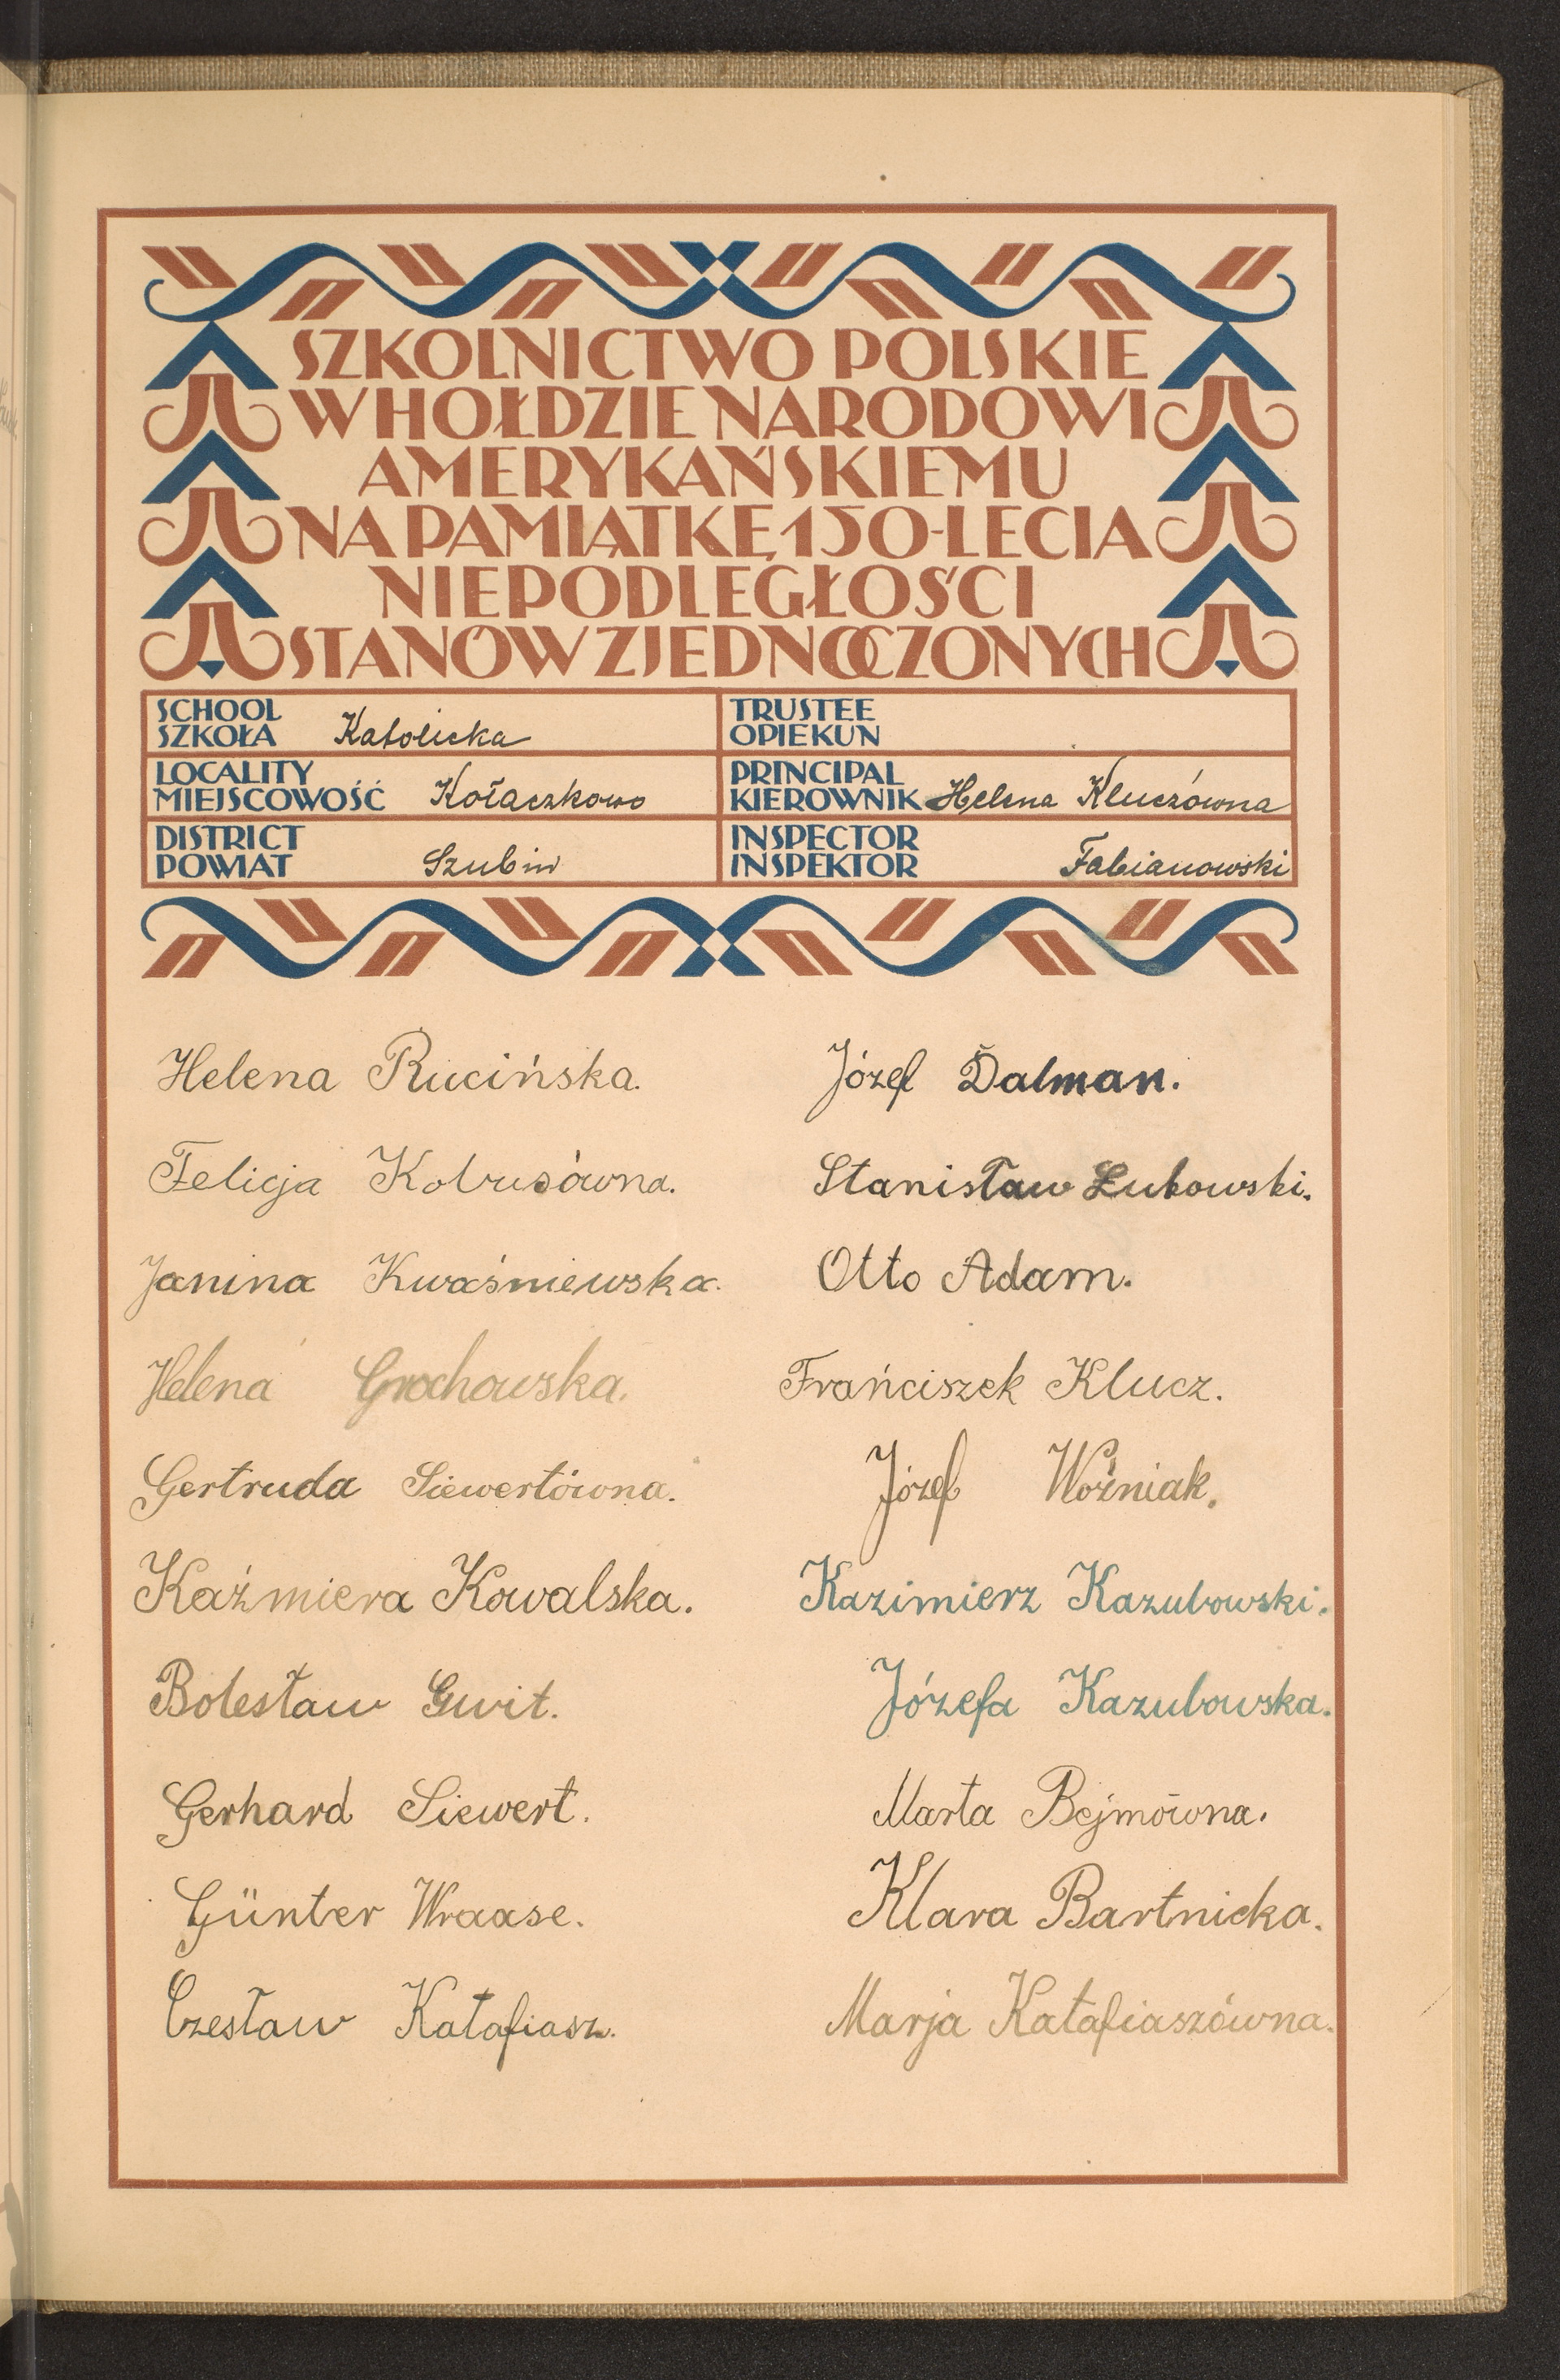 SZKOLNICTWO POLSKIE
W HOŁDZIE NARODOWI
AMERYKAŃSKIEMU
NA PAMIĄTKĘ 150-LECIA
NIEPODLEGŁOŚCI
STANÓW ZJEDNOCZONYCH
SCHOOL
SZKOŁA Katolicka
TRUSTEE
OPIEKUN
LOCALITY
MIEJSCOWOŚĆ Kołaczkowo
PRINCIPAL
KIEROWNIK Helena Kluczówna
DISTRICT
POWIAT Szubin
INSPECTOR
INSPEKTOR Fabianowski
Helena Rucińska.
Felicja Kobusówna.
Janina Kwaśniewska.
Helena Grochowska.
Gertruda Siewertówna.
Kaźmiera Kowalska.
Bolesław Gwit.
Gerhard Siewert.
Günter Wraase.
Czesław Katafiasz.
Józef Dalman.
Stanisław Łukowski.
Otto Adam.
Frańciszek Klucz.
Józef Woźniak.
Kazimierz Kazubowski.
Józefa Kazubowska.
Marta Bejmówna.
Klara Bartnicka.
Marja Katafiaszówna.